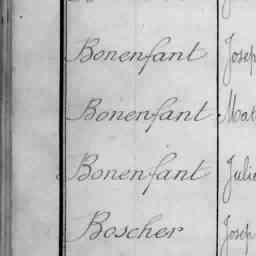 Bonenfant Josep
Bonenfant Mat
Bonenfant Julie
Boscher Josep